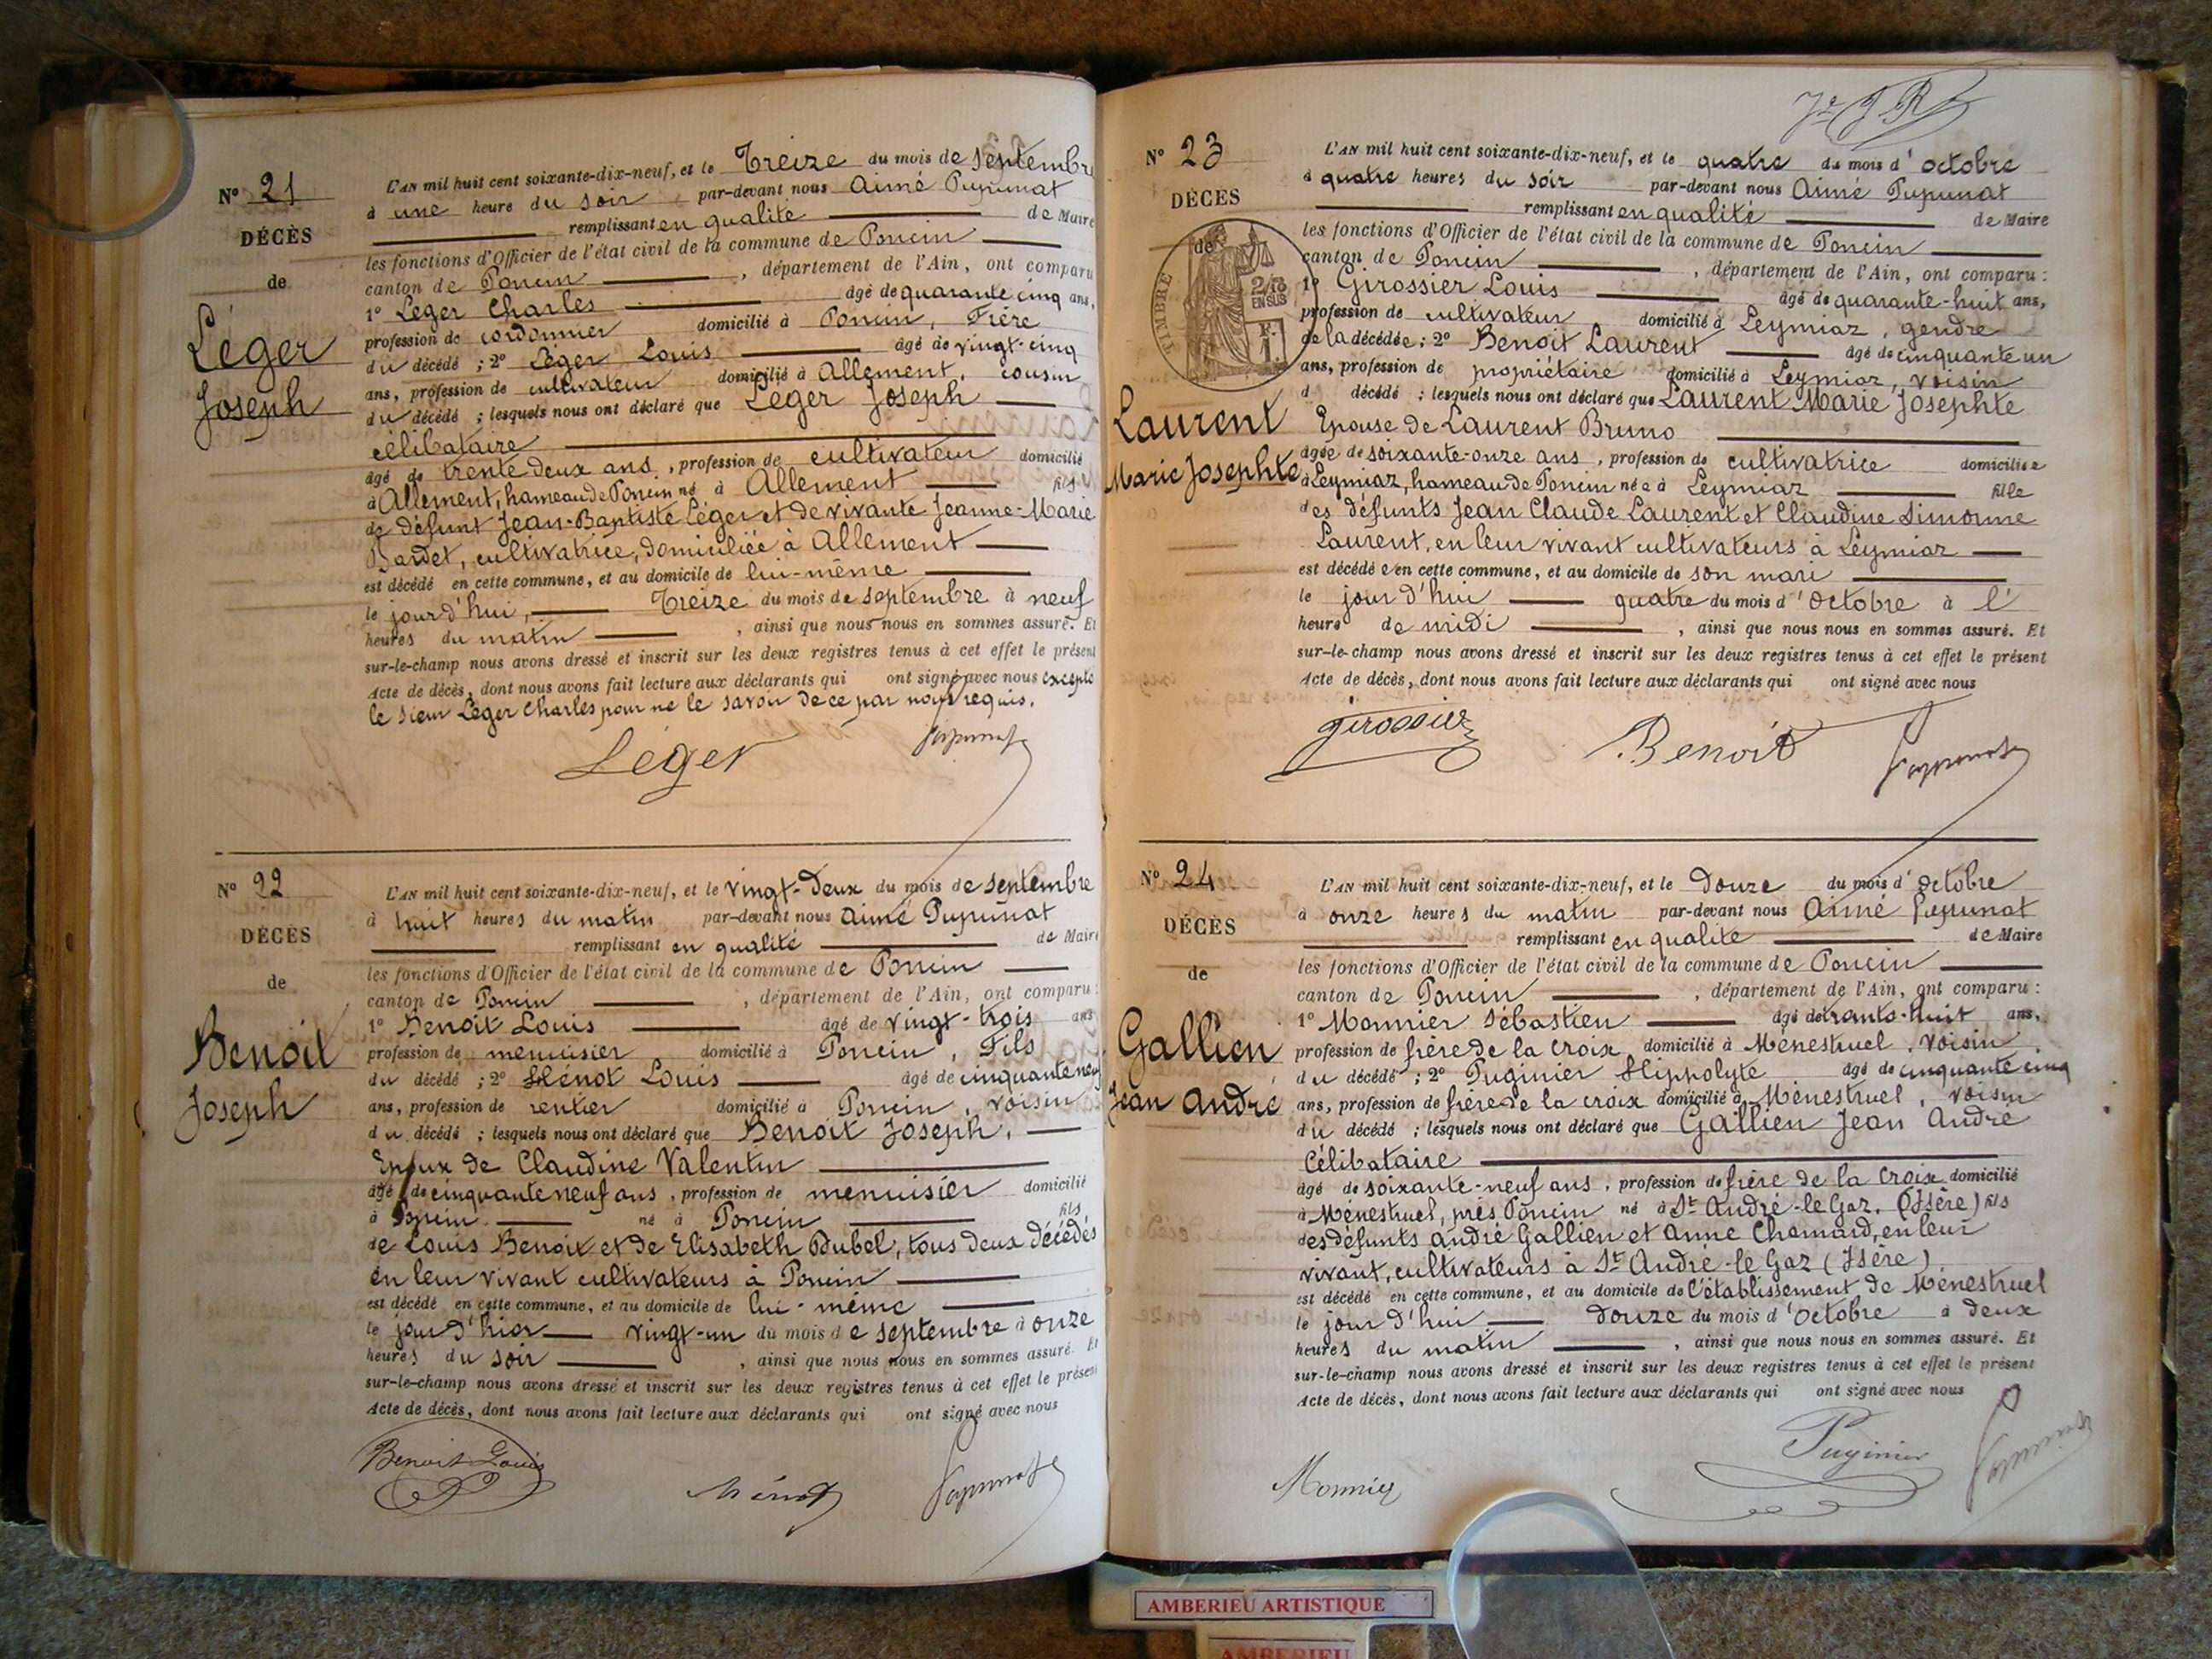 N° 21
DÉCÈS
de
Léger
Joseph
L'AN mil huit cent soixante-dix-neuf, et le Treize du mois de Septembre
à une heure du soir par-devant nous Aimé Pupunat
remplissant en qualité de Maire
les fonctions d'Officier de l'état civil de la commune de Poncin
canton de Poncin, département de l'Ain, ont comparu
1° Léger Charles âgé de quarante cinq ans,
profession de cordonnier domicilié à Poncin, Frère
du décédé ; 2° Léger Louis âgé de vingt-cinq
ans, profession de cultivateur domicilié à Allement, cousin
du décédé ; lesquels nous ont déclaré que Léger Joseph
célibataire
âgé de trente deux ans, profession de cultivateur domicilié
à Allement, hameau de Poncin né à Allement fils
de défunt Jean-Baptiste Léger et de vivante Jeanne-Marie
Bardet, cultivatrice, domiciliée à Allement
est décédé en cette commune, et au domicile de lui-même
le jourd'hui, Treize du mois de septembre à neuf
heures du matin, ainsi que nous nous en sommes assuré. Et
sur-le-champ nous avons dressé et inscrit sur les deux registres tenus à cet effet le présent
Acte de décès, dont nous avons fait lecture aux déclarants qui ont signé avec nous excepté
le sieur Léger Charles pour ne le savoir de ce par nous requis.
Léger Pupunat
N° 22
DÉCÈS
de
Benoit
Joseph
L'AN mil huit cent soixante-dix-neuf, et le vingt-deux du mois de septembre
à huit heures du matin par-devant nous Aimé Pupunat
remplissant en qualité de Maire
les fonctions d'Officier de l'état civil de la commune de Poncin
canton de Poncin, département de l'Ain, ont comparu :
1° Benoit Louis âgé de vingt-trois ans
profession de menuisier domicilié à Poncin, Fils
du décédé ; 2° Hénot Louis âgé de cinquante neuf
ans, profession de rentier domicilié à Poncin, voisin
du décédé ; lesquels nous ont déclaré que Benoit Joseph,
Epoux de Claudine Valentin
âgé de cinquante neuf ans, profession de menuisier domicilié
à Poncin né à Poncin fils
de Louis Benoit et de Elisabeth Dubel, tous deux décédés
en leur vivant cultivateurs à Poncin
est décédé en cette commune, et au domicile de lui-même
le jour d'hier vingt-un du mois de septembre à onze
heures du soir, ainsi que nous nous en sommes assuré. Et
sur-le-champ nous avons dressé et inscrit sur les deux registres tenus à cet effet le présent
Acte de décès, dont nous avons fait lecture aux déclarants qui ont signé avec nous
Benoit Louis Hénot Pupunat
N° 23
DÉCÈS
de
TIMBRE
2/10
EN SUS
Laurent
Marie Josephte
L'AN mil huit cent soixante-dix-neuf, et le quatre du mois d'octobre
à quatre heures du soir par-devant nous Aimé Pupunat
remplissant en qualité de Maire
les fonctions d'Officier de l'état civil de la commune de Poncin
canton de Poncin, département de l'Ain, ont comparu :
1° Girossier Louis âgé de quarante-huit ans,
profession de cultivateur domicilié à Leymiaz, gendre
de la décédée ; 2° Benoit Laurent âgé de cinquante un
ans, profession de propriétaire domicilié à Leymiaz, voisin
d décédé ; lesquels nous ont déclaré que Laurent Marie Josephte
Epouse de Laurent Bruno
âgée de soixante-onze ans, profession de cultivatrice domiciliée
à Leymiaz, hameau de Poncin née à Leymiaz fille
des défunts Jean Claude Laurent et Claudine Simonne
Laurent, en leur vivant cultivateurs à Leymiaz
est décédée en cette commune, et au domicile de son mari
le jour d'hui quatre du mois d'Octobre à l'
heure de midi, ainsi que nous nous en sommes assuré. Et
sur-le-champ nous avons dressé et inscrit sur les deux registres tenus à cet effet le présent
Acte de décès, dont nous avons fait lecture aux déclarants qui ont signé avec nous
girossier Benoit Pupunat
N° 24
DÉCÈS
de
Gallien
Jean André
L'AN mil huit cent soixante-dix-neuf, et le Douze du mois d'octobre
à onze heures du matin par-devant nous Aimé Pupunat
remplissant en qualité de Maire
les fonctions d'Officier de l'état civil de la commune de Poncin
canton de Poncin, département de l'Ain, ont comparu :
1° Monnier Sébastien âgé de trante-huit ans,
profession de frère de la croix domicilié à Ménestruel, voisin
du décédé ; 2° Puginier Hippolyte âgé de cinquante cinq
ans, profession de frère de la croix domicilié à Ménestruel, voisin
du décédé ; lesquels nous ont déclaré que Gallien Jean André
Célibataire
âgé de soixante-neuf ans, profession de frère de la Croix domicilié
à Ménestruel, près Poncin né à St André-le-Gaz. (Isère) fils
des défunts André Gallien et Anne Chamard, en leur
vivant, cultivateurs à St André-le Gaz (Isère)
est décédé en cette commune, et au domicile de l'établissement de Ménestruel
le jour d'hui douze du mois d'Octobre à deux
heures du matin, ainsi que nous nous en sommes assuré. Et
sur-le-champ nous avons dressé et inscrit sur les deux registres tenus à cet effet le présent
Acte de décès, dont nous avons fait lecture aux déclarants qui ont signé avec nous
Monnier Puginier Pupunat
AMBERIEU ARTISTIQUE
AMBERIEU